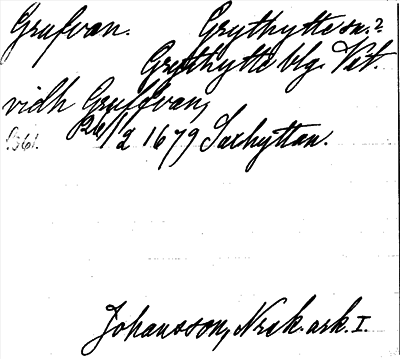 Grufvan. Grythytte sn.?
Grythytte blg. Vet.
vidh Gruffvan,
26/2 1679 Saxhyttan.
Johansson, Nrck. ark. I.